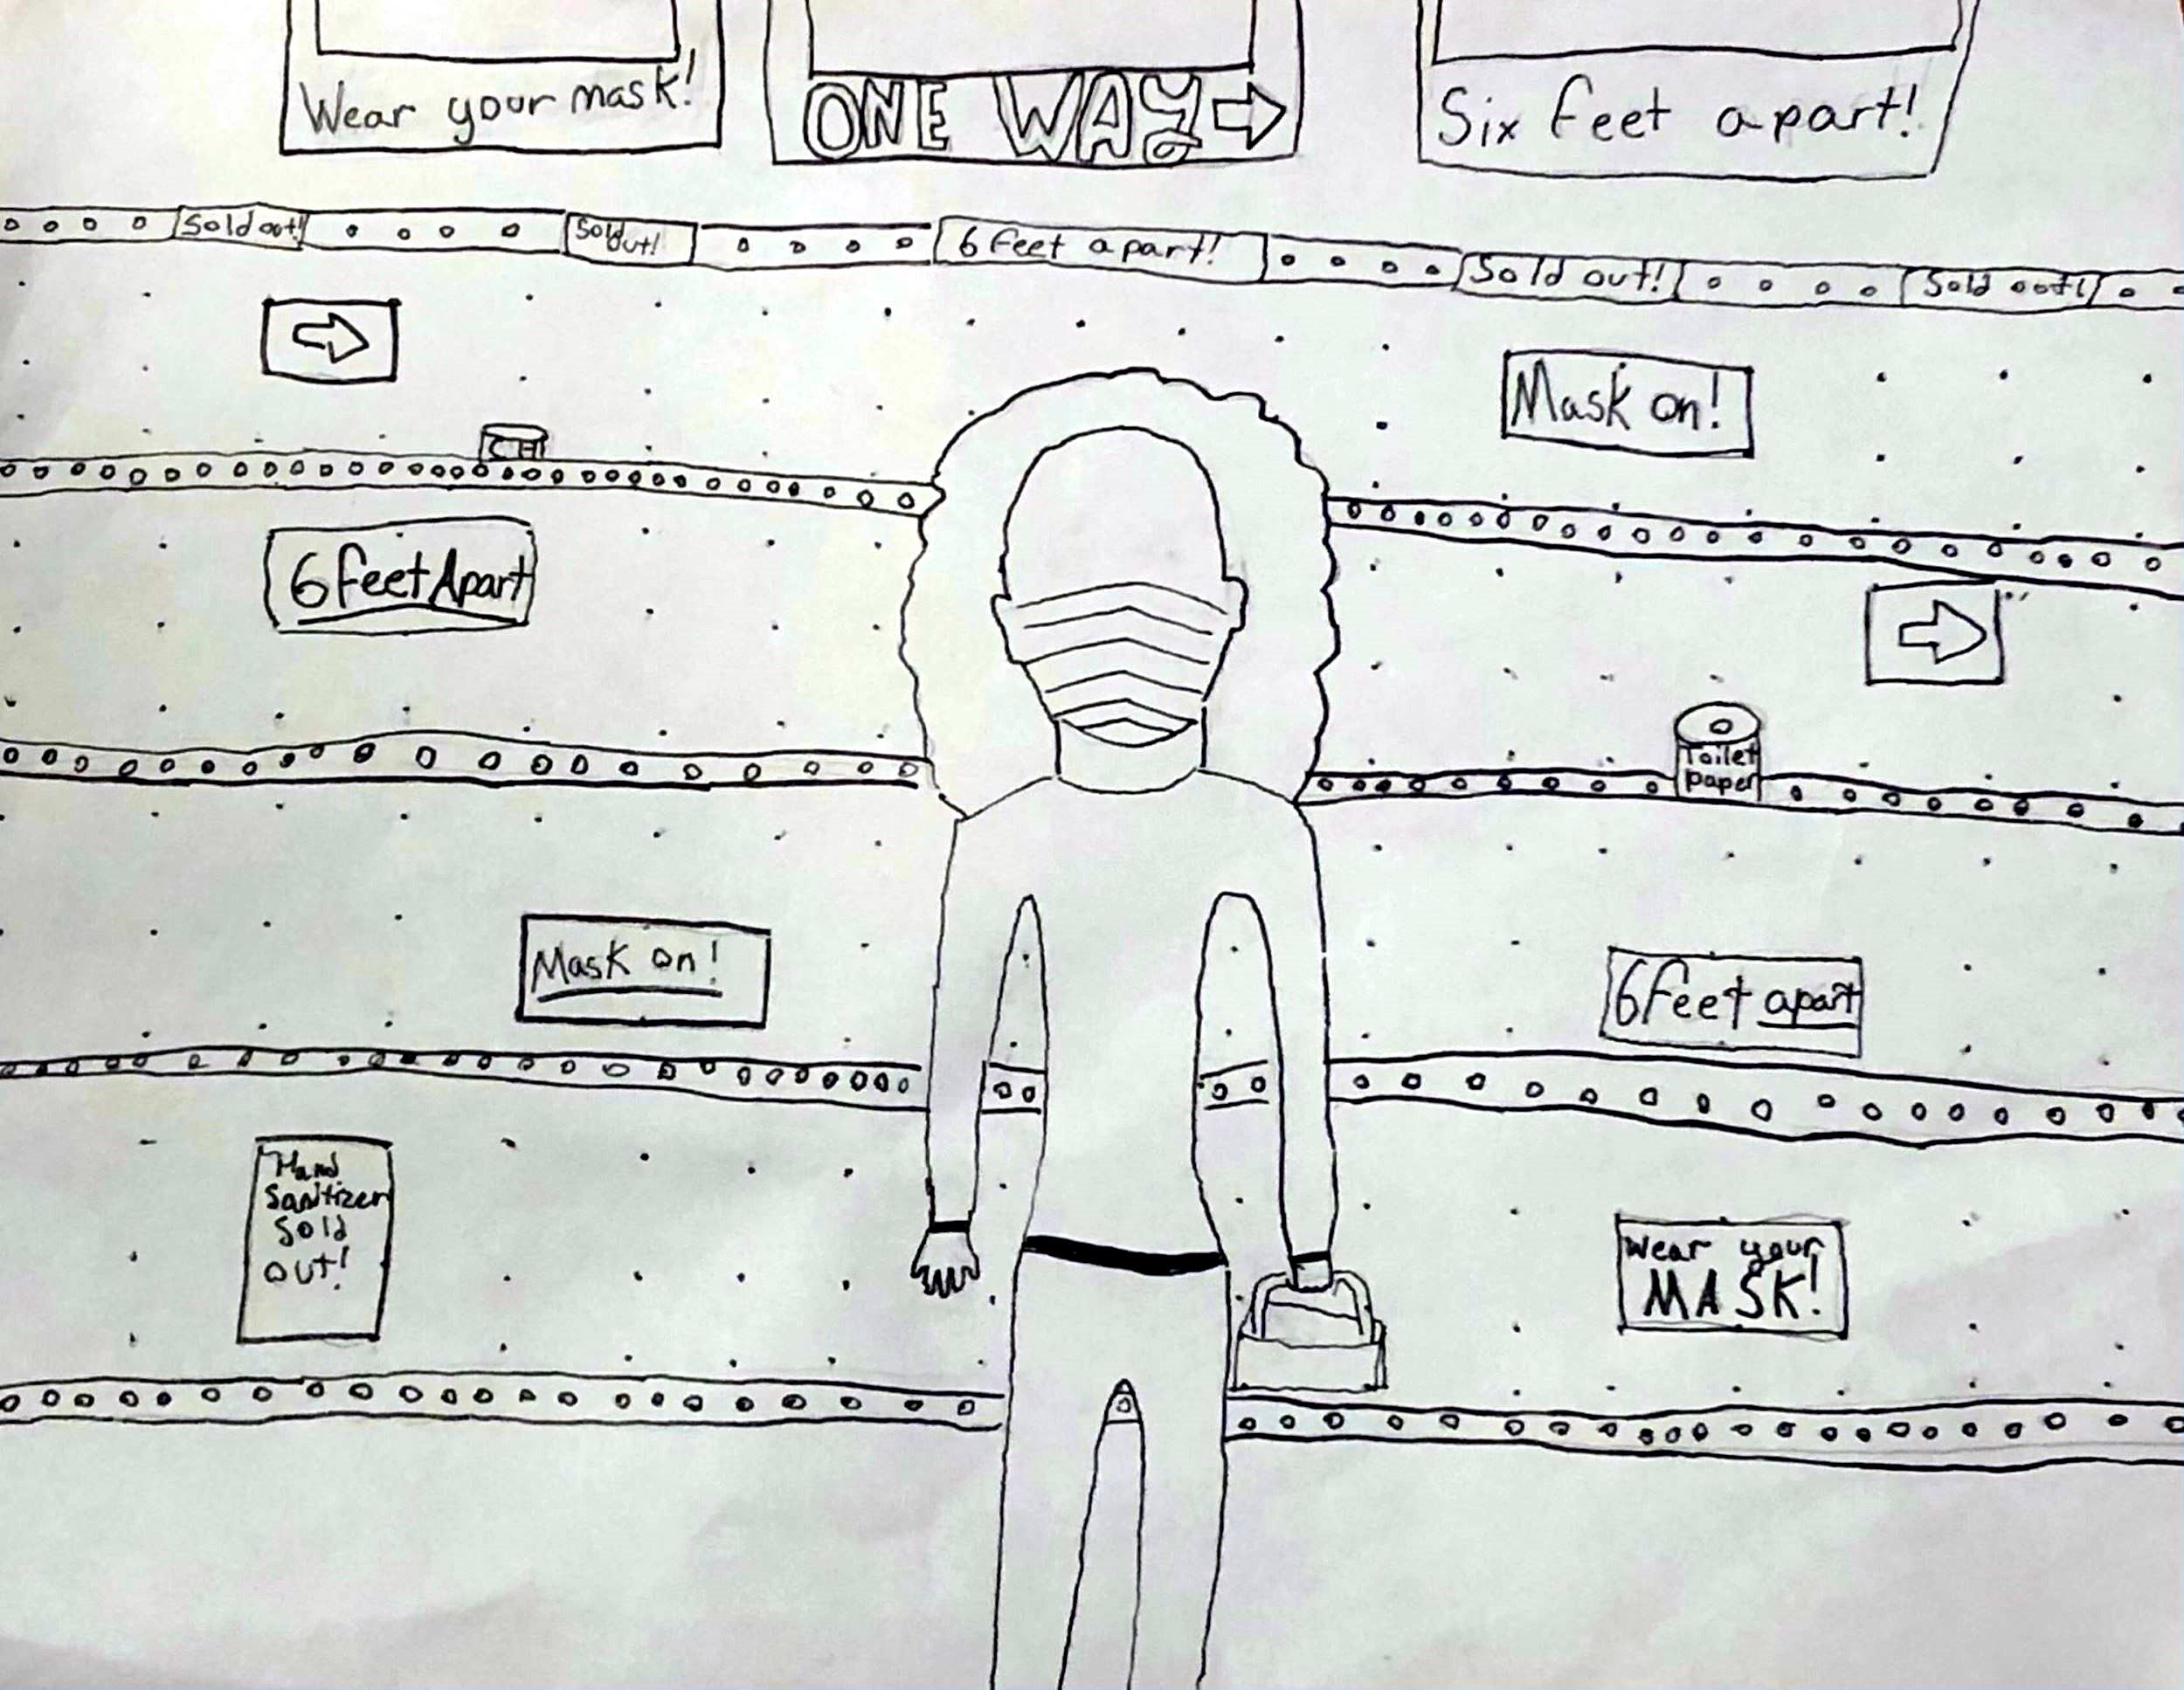 Wear your mask!
ONE WAY
Six feet apart!
Sold out!
Sold out!
6 feet apart!
Sold out!
Sold out!
Mask on!
6 feet Apart
Toilet
paper
Mask on!
6 feet apart
Hand
Sanitizer
Sold
out!
Wear your
MASK!